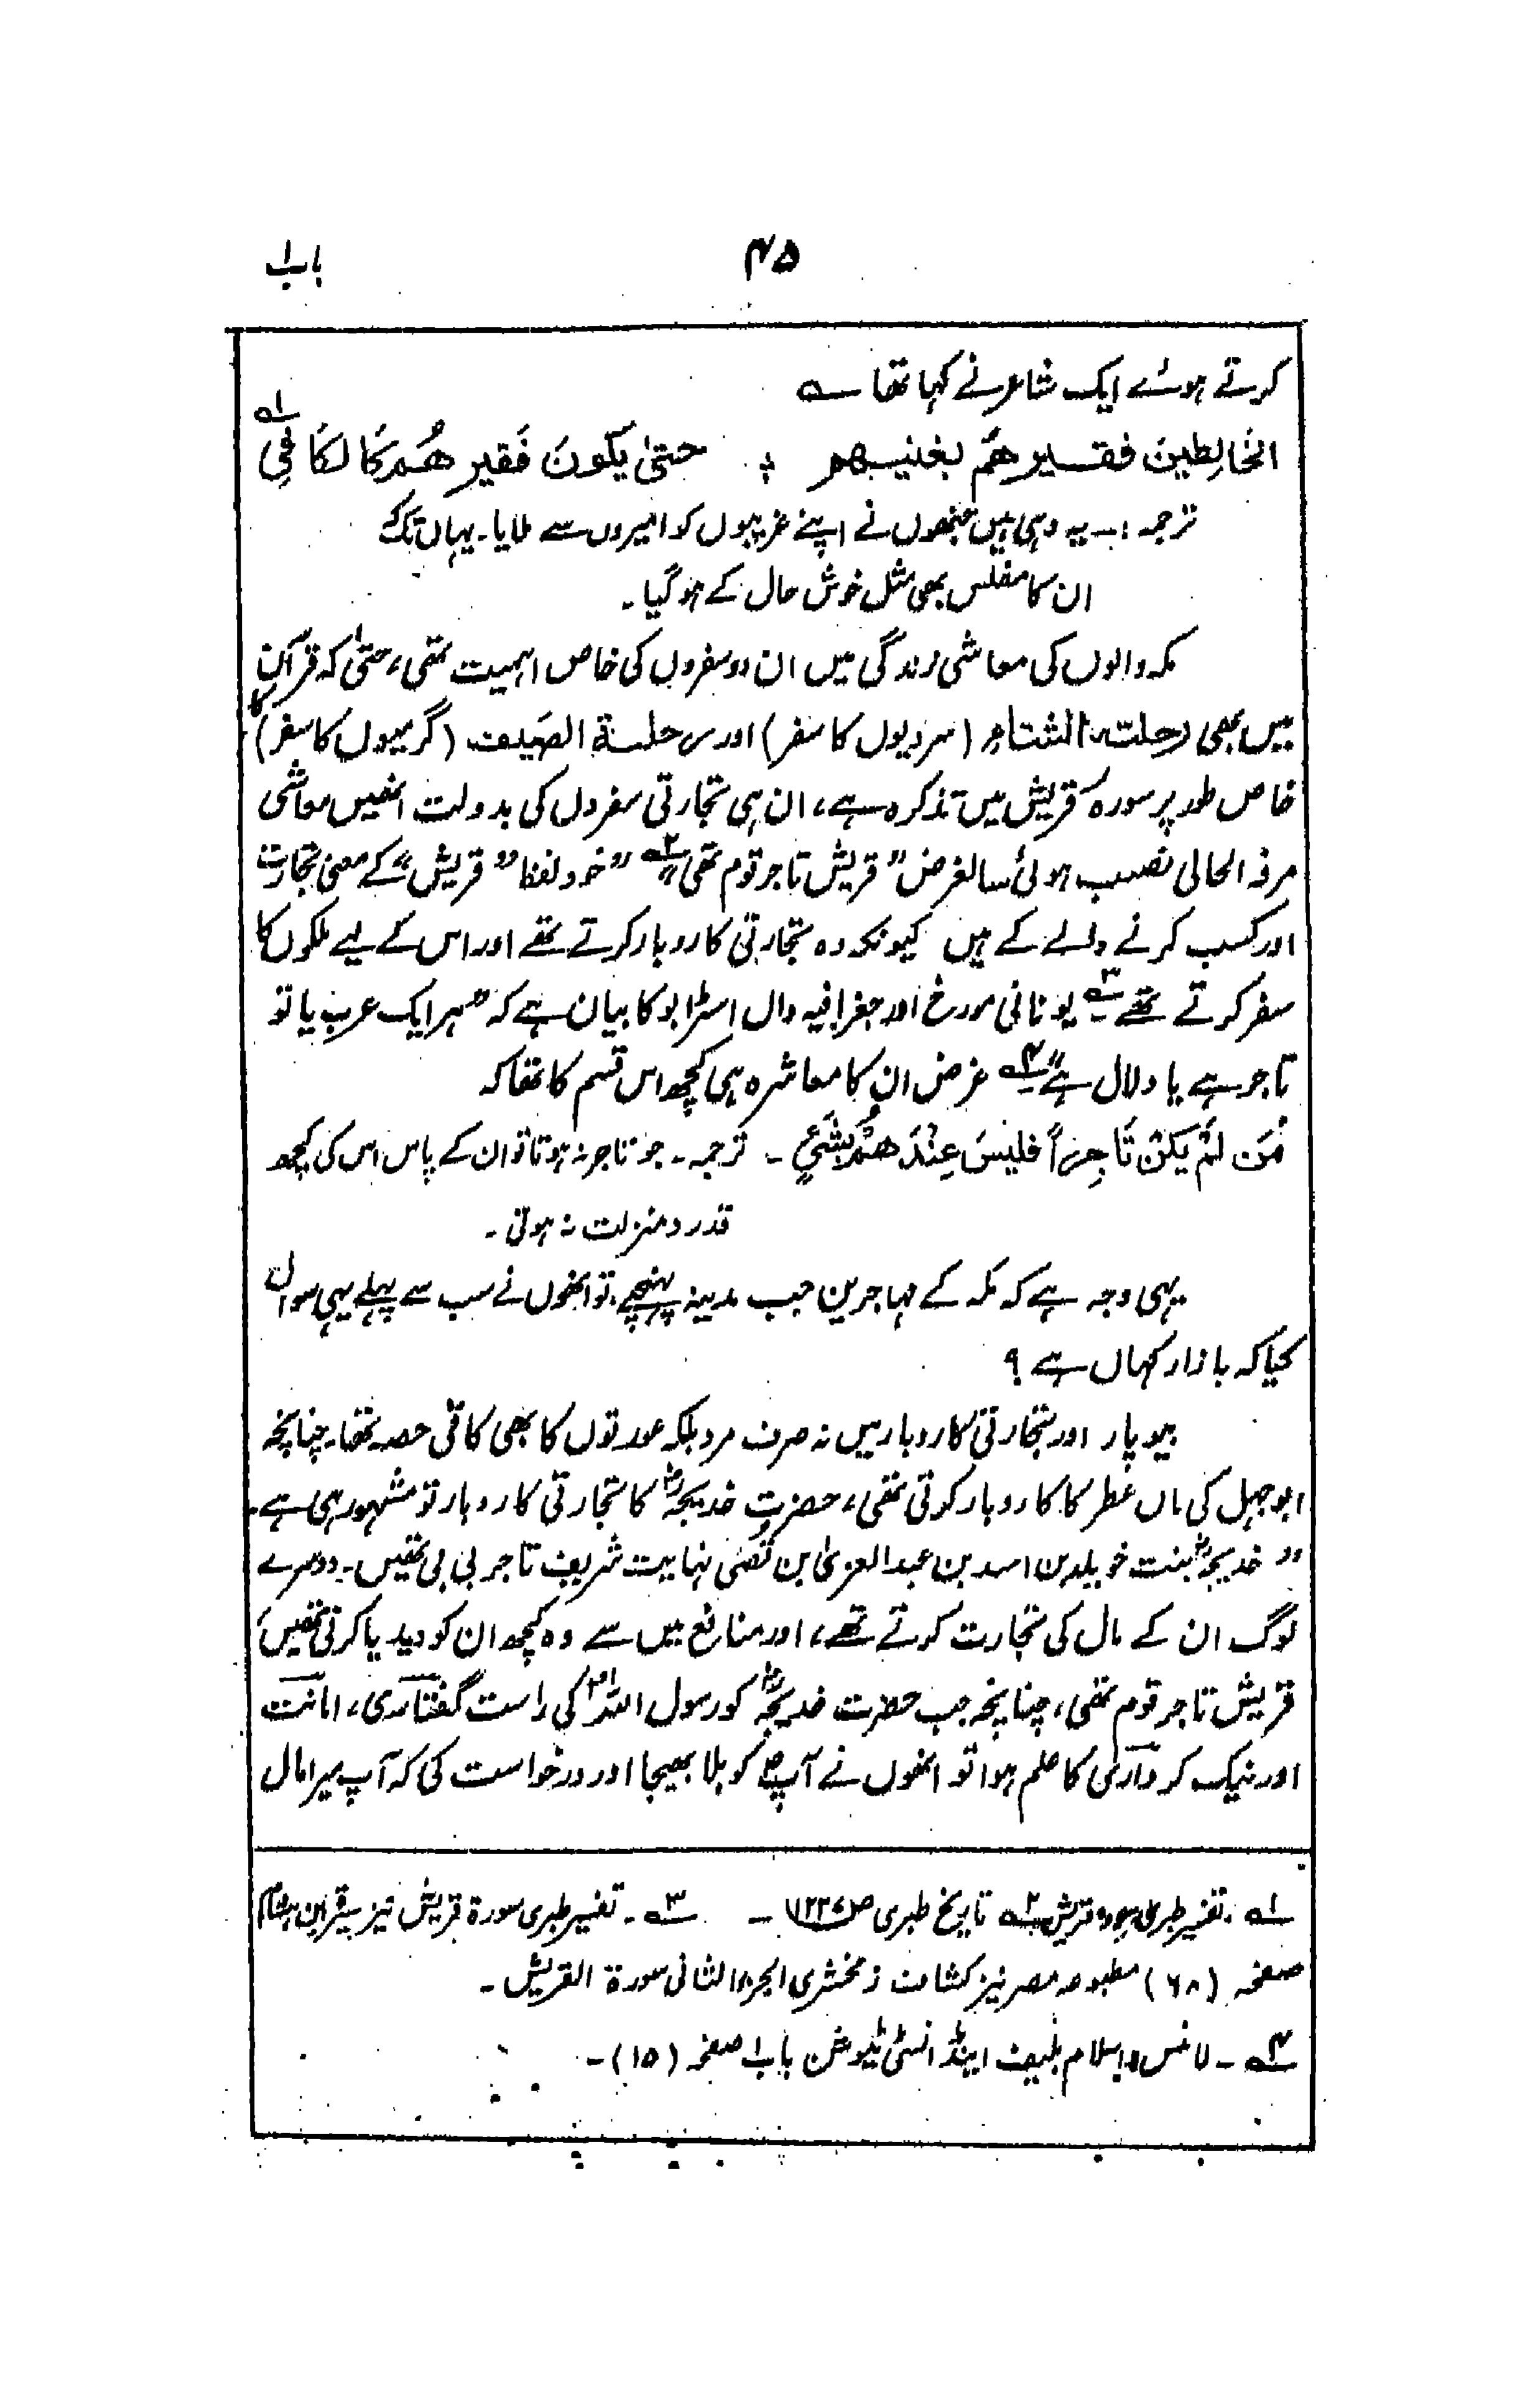 ۴۵
باب ۱
کرتے ہوئے ایک شاعر نے کہا تھا ؎
الخالِطینَ فقیرھُم بغنیبھم ؛ حتیٰ یکونَ فَقیر ھُم کَالکَافِی ؎۱
ترجمہ :۔ یہ وہی ہیں جنھوں نے اپنے غریبوں کو امیروں سے ملایا۔ یہاں تک کہ
ان کا مفلس بھی مثل خوش حال کے ہو گیا۔
مکہ والوں کی معاشی زندگی میں ان دو سفروں کی خاص اہمیت تھی، حتیٰ کہ قرآن
میں بھی رحلتہ الشتاء (سردیوں کا سفر) اور رحلۃ الصَیف (گرمیوں کا سفر) کا
خاص طور پر سورہ قریش میں تذکرہ ہے، ان ہی تجارتی سفروں کی بدولت انھیں معاشی
مرفہ الحالی نصیب ہوئی۔ الغرض "قریش تاجر قوم تھی" ؎۲ "خود لفظ" قریش "کے معنی تجارت
اور کسب کرنے والے کے ہیں کیونکہ وہ تجارتی کاروبار کرتے تھے اور اس کے لیے ملکوں کا
سفر کرتے تھے ؎۳ یونانی مورخ اور جغرافیہ داں اسٹرابو کا بیان ہے کہ "ہر ایک عرب یا تو
تاجر ہے یا دلال ہے" ؎۴ غرض ان کا معاشرہ ہی کچھ اس قسم کا تھا کہ
مَن لَمْ یَکُنْ تَاجِراً فلیسَ عِنْدَ ھُمْ بِشَیٍٔ ۔ ترجمہ ۔ جو تاجر نہ ہوتا تو ان کے پاس اس کی کچھ
قدر و منزلت نہ ہوتی ۔
یہی وجہ ہے کہ مکہ کے مہاجرین جب مدینہ پہنچے، تو انھوں نے سب سے پہلے یہی سوال
کیا کہ بازار کہاں ہے ؟
بیوپار اور تجارتی کاروبار میں نہ صرف مرد بلکہ عورتوں کا بھی کافی حصہ تھا۔ چنانچہ
ابوجہل کی ماں عطر کا کاروبار کرتی تھی، حضرت خدیجہؓ کا تجارتی کاروبار تو مشہور ہی ہے۔
"خدیجہؓ بنت خویلد بن اسد بن عبدالعزیٰ بن قُصَی نہایت شریف تاجر بی بی تھیں۔ دوسرے
لوگ ان کے مال کی تجارت کرتے تھے، اور منافع میں سے وہ کچھ ان کو دیدیا کرتی تھیں،
قریش تاجر قوم تھی، چنانچہ جب حضرت خدیجہؓ کو رسول اللہؐ کی راست گفتاری، امانت
اور نیک کرداری کا علم ہوا تو انھوں نے آپؐ کو بلا بھیجا اور درخواست کی کہ آپ میرا مال
؎۱۔ تفسیر طبری سورہ قریش ؎۲ تاریخ طبری ص ۱۲۲۷ ۔ ؎۳۔ تفسیر طبری سورۃ قریش نیز سیرۃ ابن ہشام
صفحہ (۶۸) مطبوعہ مصر نیز کشاف زمخشری الجزء الثانی سورۃ القریش ۔
؎۴۔ لامنس، اسلام بلیف اینڈ انسٹی ٹیوشن باب ۱ صفحہ (۱۵)۔